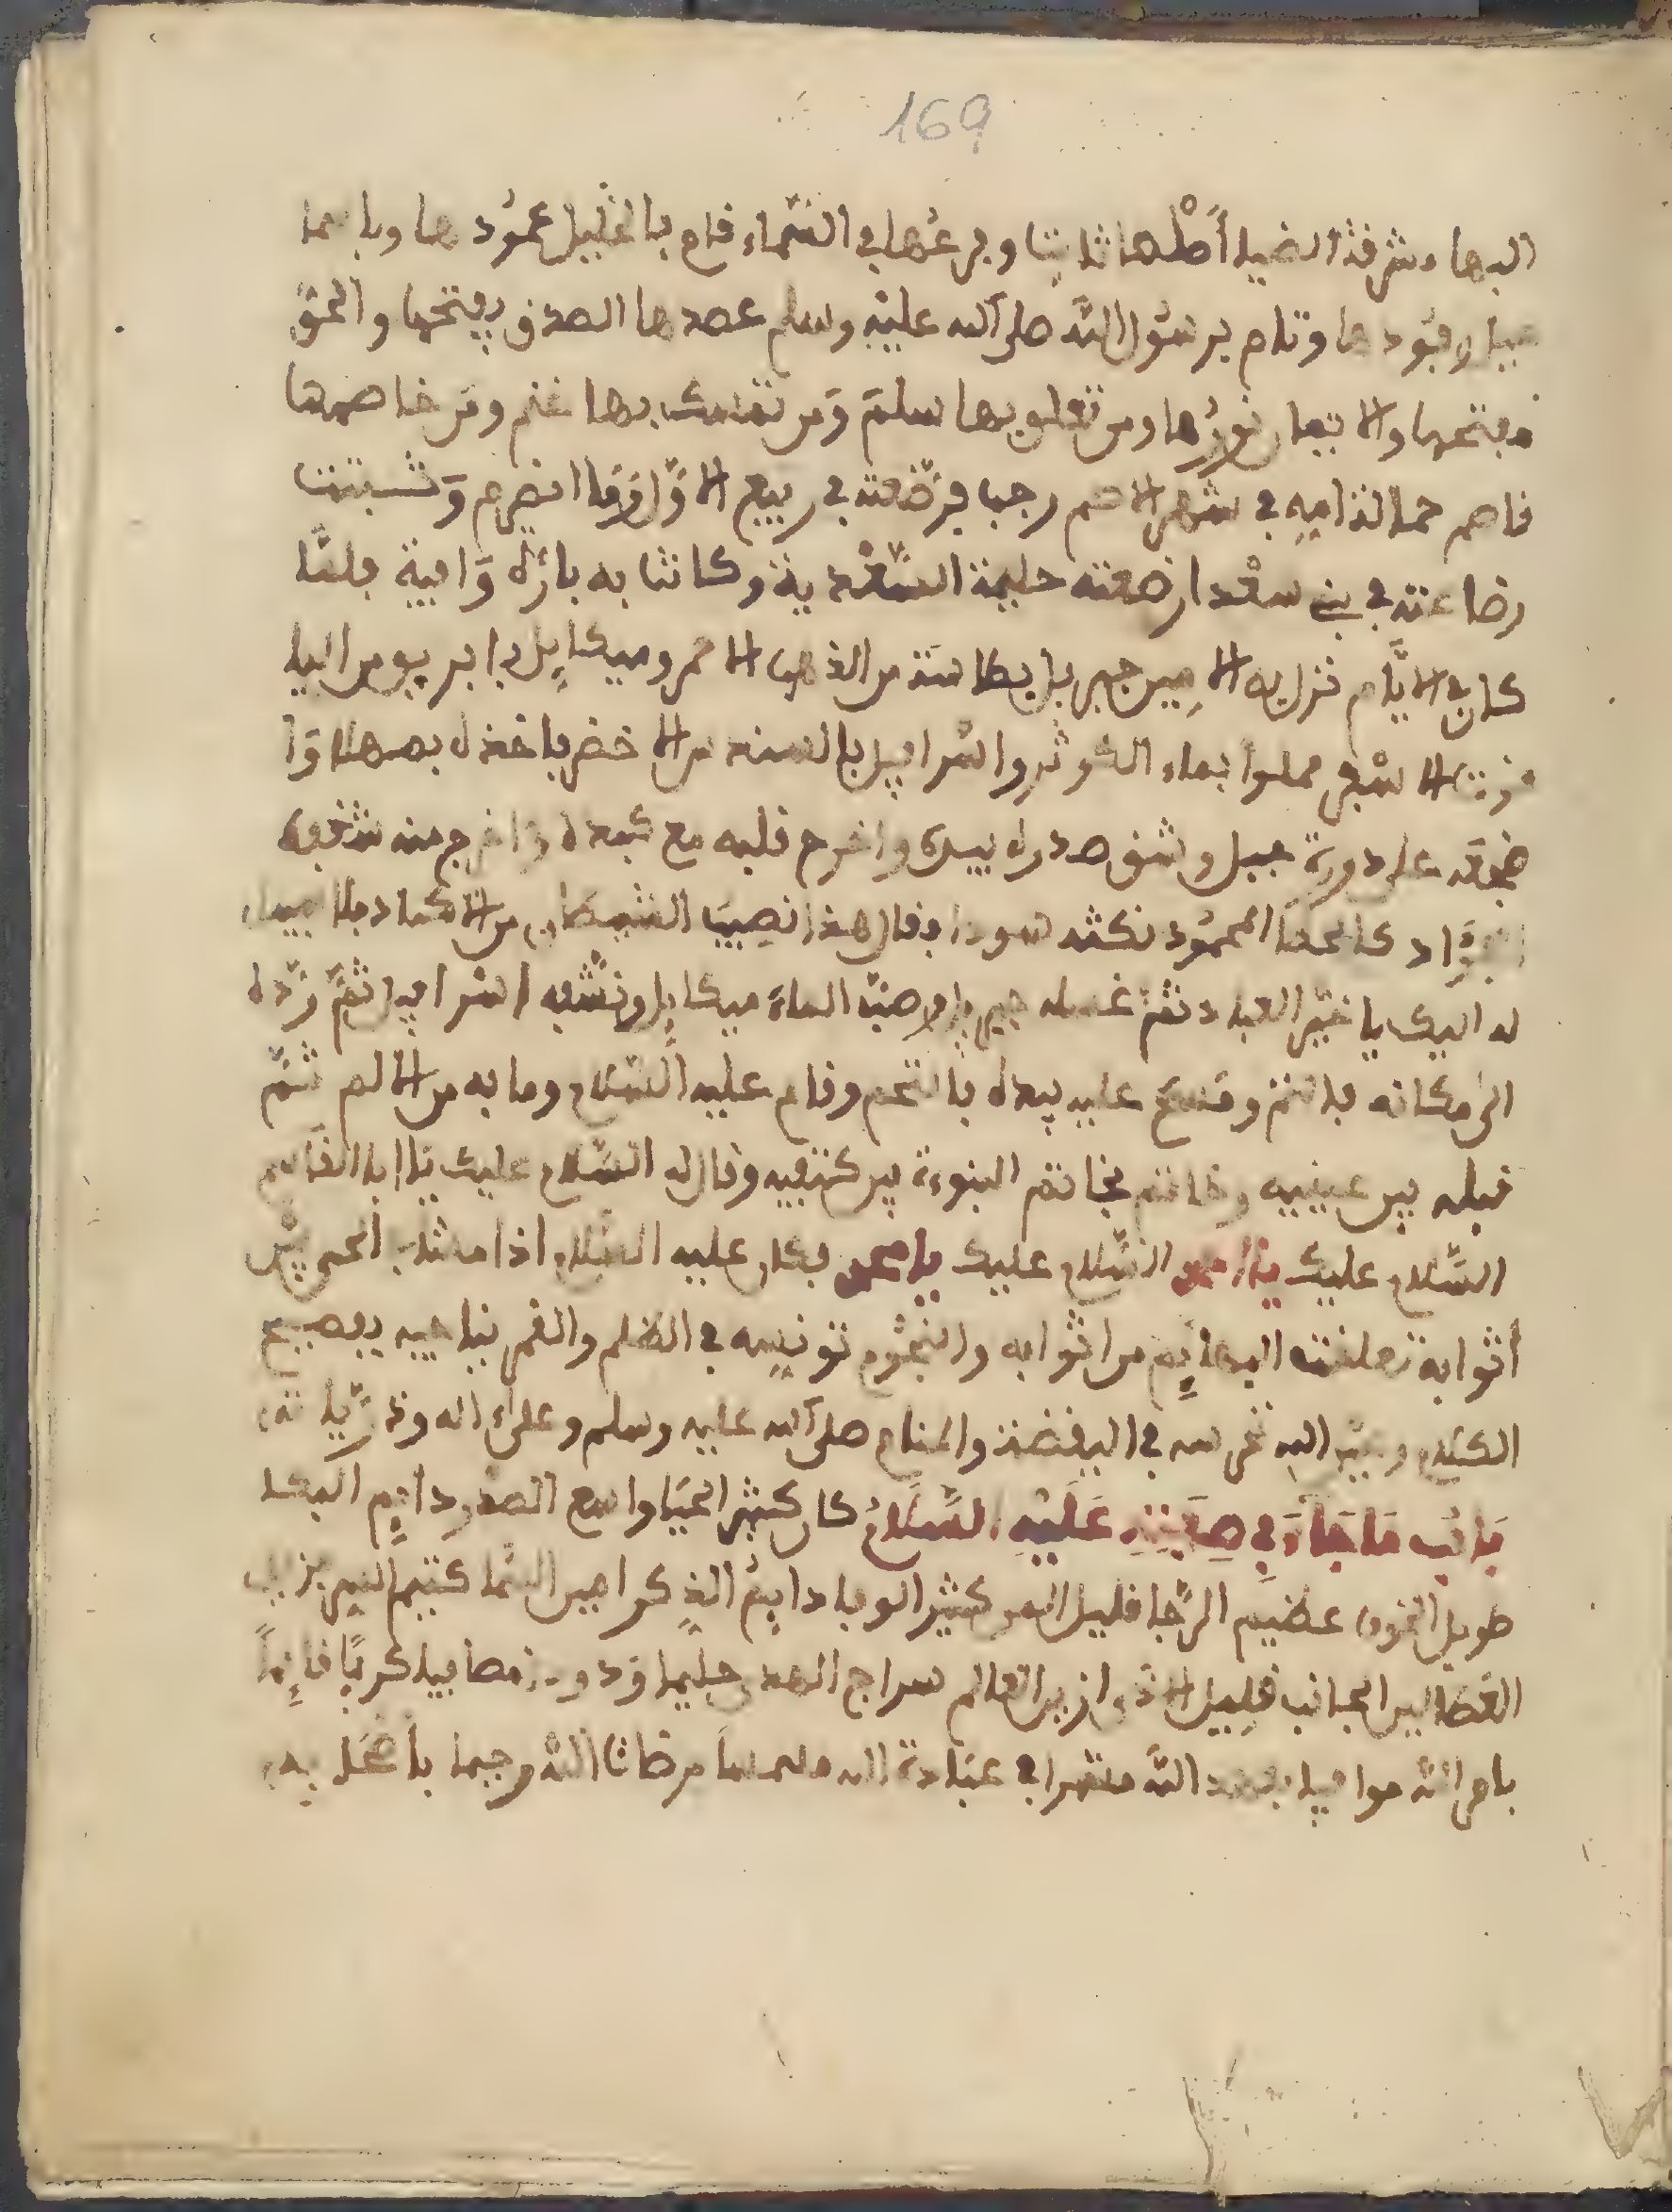 169
البهاء وشرفة الضيا أصلها ثابتا وفرعها في السماء قام بالخليل عمودها وباسما
عيل وقودها وتام برسول الله صلى الله عليه وسلم عصدها الصدق يفتحها والحق
ونورها ومن تعلق بها سلم ومن تمسك بها غنم ومن خاصمها
خاصم حمالة امه في شهر الاصم رجب فوضعته في ربيع الاول انصرم وتسبتت
رضاعته في بني سعد ارضعته حليمة السعدية وكانت به بارة وابية فلما
كان في الايام نزل به الامين جبريل بطاسة من الذهب الاحمر وميكايل بابريق من اليا
قوت الاشقر مملوا بماء الكوثر واسرافيل بالسندس الاخضر فاخذه بعضهم
ضجعه على دورة جبل وشق صدره بيده واخرج قلبه مع كبده واخرج منه شقيق
نكتة سودا وقال هذا نصيب الشيطان من الاكباد فلا سبيل
له اليك يا خير العباد ثم غسله جبريل وصب الماء ميكايل ونشفه اسرافيل ثم رده
الى مكانه فالتم ومسح عليه بيده فالتحم وقام عليه السلام وما به من الالم ثم
قبله بين عينيه وخاتم بخاتم النبوءة بين كتفيه وقال له السلام عليك يا ابا القاسم
السلام عليك يا احمد السلام عليك يا محمد فكان عليه السلام اذا مشى
أثوابه تعلقت البهايم من اثوابه والنجوم تونسه في الظلم والقمر يناجيه بفصيح
الكلام وعين الله تحرسه في اليقضة والمنام صلى الله عليه وسلم وعلى اله وذرياته
باب ما جاء في صفته عليه السلام كان كثير الحيا واسع الصدر دايم البكا
طويل الحزن عظيم الرجا قليل كثير الوفا دايم الذكر امين السما كتيم السر
القضا لين الجانب قليل الاذى زين العالم سراج الهدى حليما ودودا مضافيا كريما قايما
بامر الله موافيا بعهد الله متقربا في عبادة الله مرضات الله رحيما باهل